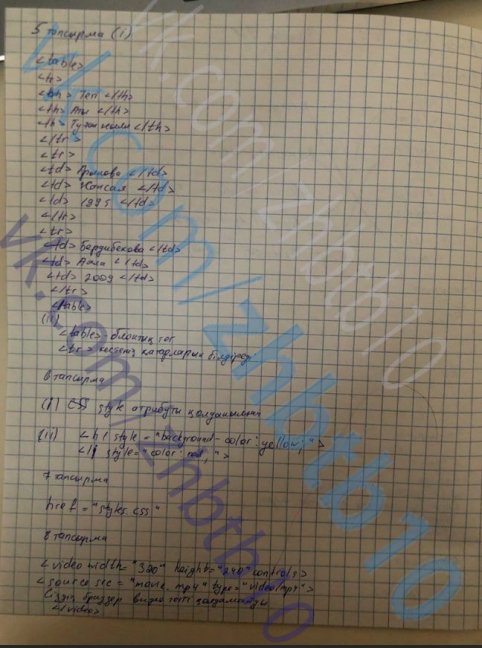 5 тапсырма (i)
<table>
<tr>
<th> Тегі </th>
<th> Аты </th>
<th> Туған жылы </th>
</tr>
<tr>
<td> </td>
<td> Жансая </td>
<td> 1995 </td>
</tr>
<tr>
<td> Бердибекова </td>
<td> </td>
<td> 2009 </td>
</tr>
</table>
(ii)
<table> - блоктық тег
<tr> кестенің қатарларын білдіреді
6 тапсырма
(i) CSS style атрибуты қолданылған
(ii) <h1 style = "background-color: yellow;">
style="color: red;">
7 тапсырма
href = "styles css"
8 тапсырма
<video width= "320" height="240" controls>
<source src = "movie.mp4" type="video/mp4">
Сіздің браузер видео тегті қолдамайды
</video>
vk.com/zhbtb10
vk.com/zhbtb10
vk.com/zhbtb10